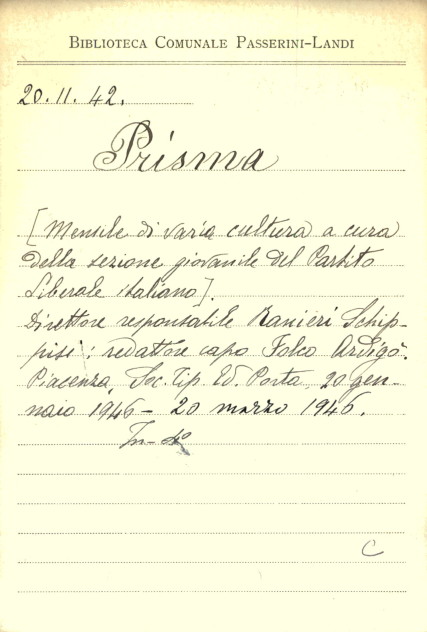 BIBLIOTECA COMUNALE PASSERINI-LANDI
20.11.42.
Prisma
[Mensile di varia cultura a cura
della sezione giovanile del Partito
Liberale italiano].
Direttore responsabile Ranieri Schip-
pisi; redattore capo Folco Ardigò.
Piacenza, Soc. Tip. Ed. Porta, 20 gen-
naio 1946 - 20 marzo 1946.
In-4º
C